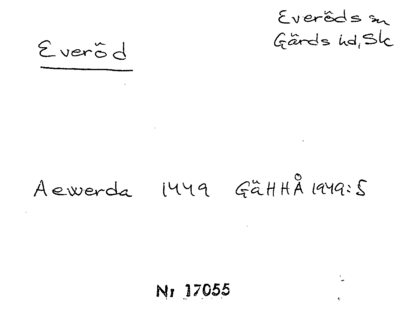 Everöds sn
Everöd
Gärds hd, Sk
Aewerda 1449 GäHHÅ 1949:5
Nr 17055